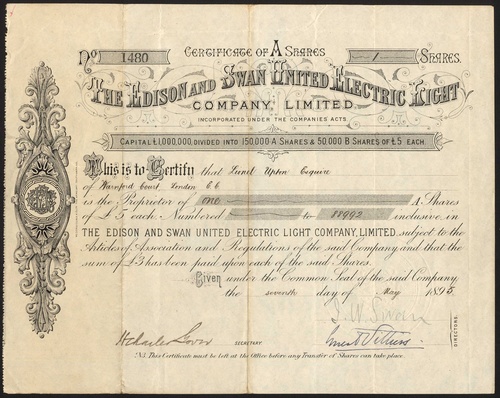 No 1480 CERTIFICATE OF A SHARES 1 SHARES.
THE EDISON AND SWAN UNITED ELECTRIC LIGHT
COMPANY, LIMITED.
INCORPORATED UNDER THE COMPANIES ACTS.
CAPITAL £1,000,000, DIVIDED INTO 150,000 A SHARES & 50,000 B SHARES OF £5 EACH
This is to Certify that Upton Esquire
of Warnford Court, London EC
is the Proprietor of one A Shares
of £5 each. Numbered to 88992 inclusive in
THE EDISON AND SWAN UNITED ELECTRIC LIGHT COMPANY, LIMITED, subject to the
Articles of Association and Regulations of the said Company and that the
sum of £3 has been paid upon each of the said Shares.
Given under the Common Seal of the said Company,
the seventh day of May 1895.
J. W. Swan
SECRETARY.
DIRECTORS.
NB. This Certificate must be left at the Office before any Transfer of Shares can take place.